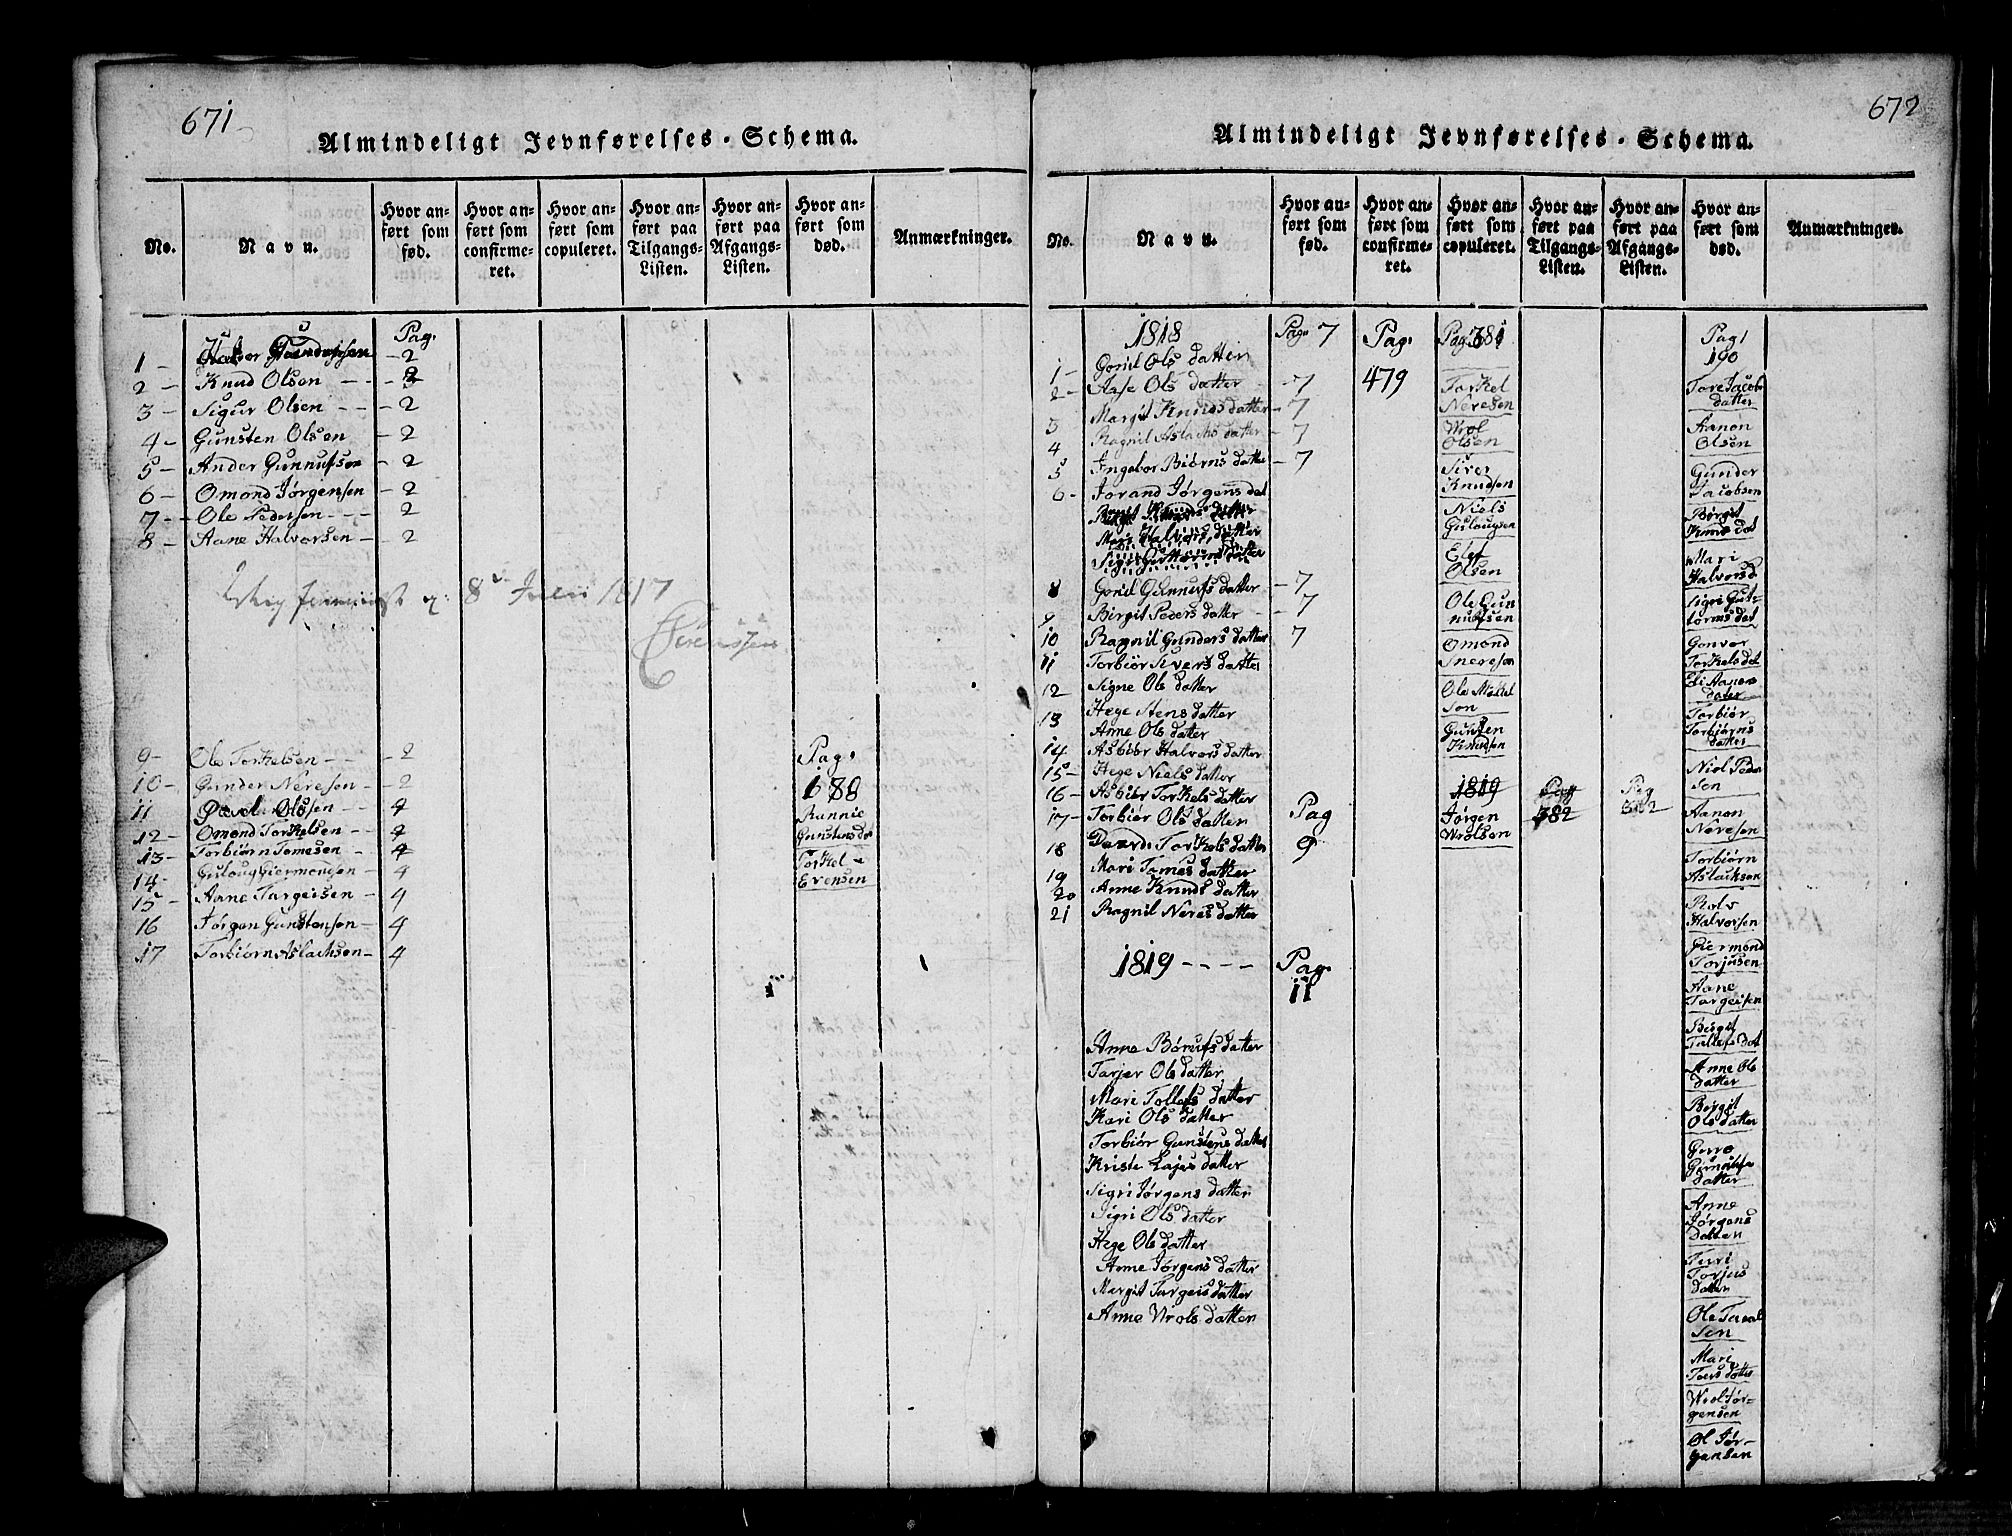 671
Almindeligt Jevnførelses-Schema.
No.
Navn.
Hvor anført som fød.
Hvor anført som confirmeret.
Hvor anført som copuleret.
Hvor anført paa Tilgangs-Listen.
Hvor anført paa Afgangs-Listen.
Hvor anført som død.
Anmærkninger.
Pag.
1 - - 2
2 - Knud Olsen - - - 2
3 - Sigur Olsen - - - 2
4 - Gunsten Olsen - 2
5 - Ander Gunnufsen - 2
6 - Omond Jørgensen - 2
7 - Ole Pedersen - - - 2
8 - Aane Halvorsen - - 2
8de Julii 1817
Sørenssen
9 - Ole Torkelsen - - - 2
10 - Gunder Neresen - - 2
11 Olsen - - 4
12 - Omond Torkelsen - - 4
13 - Torbiørn Tomesen - 4
14 - Guloug Giermonsen - 4
15 - Aane Targeisen - 4
16 Jørgen Gunstensen - 4
17 Torbiørn Aslachsen - 4
Pag.
180
Rannie
Gunstensda
Torkel -
Evensen
672
Almindeligt Jevnførelses-Schema.
No.
Navn.
Hvor anført som fød.
Hvor anført som confirmeret.
Hvor anført som copuleret.
Hvor anført paa Tilgangs-Listen.
Hvor anført paa Afgangs-Listen.
Hvor anført som død.
Anmærkninger.
1818 Pag. 7 Pag. Pag. 381
1 - Gonil Ols datter
2 - Aase Ols datter - 7 479
3 Margit Knuds datter - 7
4 Ragnil Aslachs datter - 7
5 Ingebor Biørns datter - 7
6 - Jorand Jørgens dat
Birgit Knuds datter
Mari Halvors datter
Sigri Guttorms datter
8 Gonil Gunnufs datter - 7
9 Birgit Peders datter - 7
10 Ragnil Gunders datter 7
11 Torbiør Sivers datter
12 Signe Ols datter
13 Hege Stens datter
Anne Ols datter
14 Asbiør Halvors datter
15 - Hege Niels datter
16 - Asbiør Torkels datter
17 - Torbiør Ols datter Pag
18 Torkels datter 9
19 Mari Tomes datter
20 Anne Knuds datter
21 Ragnil Neres datter
1819 - - - - Pag.
11
Anne Børnufs datter
Tarjer Ols datter
Mari Tollefs datter
Kari Ols datter
Torbiør Gunstens datter
Kriste Lajes datter
Sigri Jørgens datter
Sigri Ols datter
Hege Ols datter
Anne Jørgens datter
Margit Targeis datter
Anne Wrols datter
Torkel
Neresen
Wrol
Olsen
Siver
Knudsen
Niels
Gulougsen
Elef
Olsen
Ole Gun
nufsen
Omond
Sneresen
Ole
Son
Gunsten
Knudsen
1819
Jørgen
Wrolsen
Pag
382
Pag
382
Pag
190
Tore Jacobs
datter
Aanon
Olsen
Gunder
Jacobsen
Børgit
Knuds dat
Mari
Halvorsd
Sigri Gut-
torms dat
Gonvor
Torkels dat
Eli Aanons
dater
Torbiør
Torbiørns
datter
Niol Peder
Son
Aanon
Neresen
Torbiørn
Aslacksen
Rolv
Halvorsen
Giermond
Torjusen
Aane
Targeisen
Birgit
Tallefs dat
Anne Ols
datter
Børgit
Ols datter
Gunnufs
datter
Anne
Jørgens
Datter
Turi
Torjus
datter
Ole
Son
Mari
Toers datter
Wrol Jør-
gensen
Ol Jør-
gensen